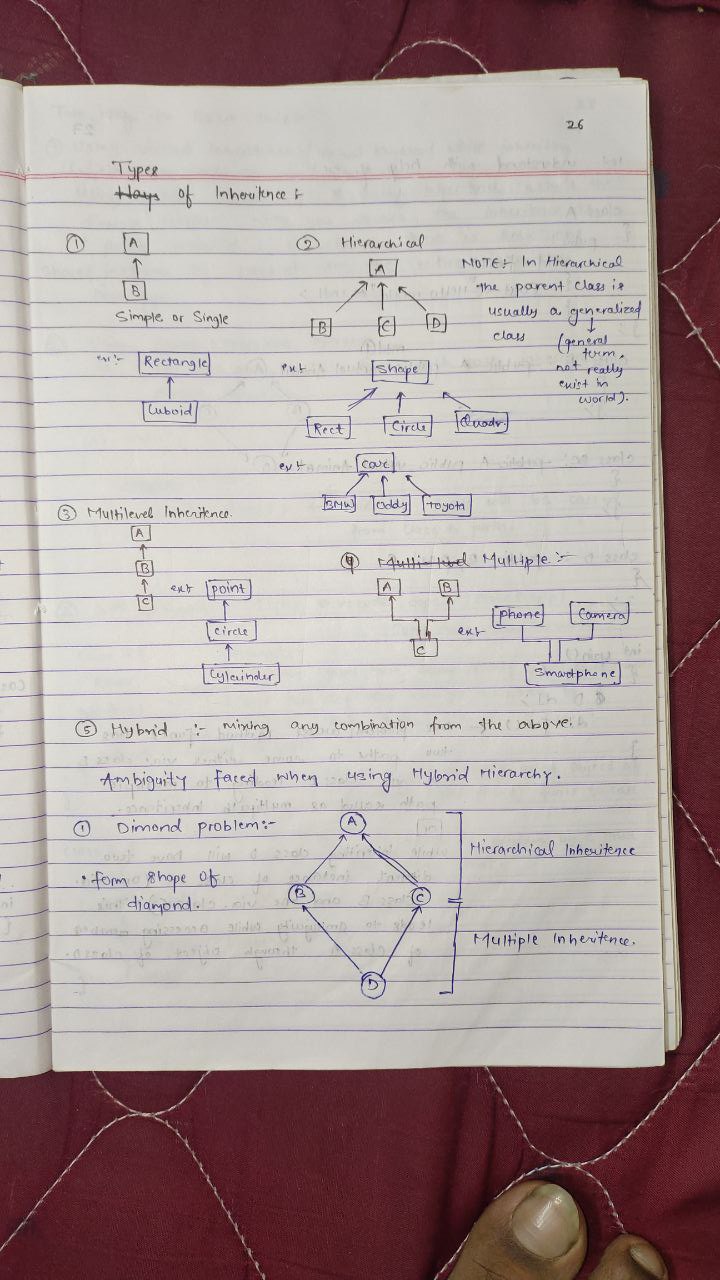 26
Types
Ways of Inheritence :-
①
A
B
Simple or Single
ex:- Rectangle
Cuboid
② Hierarchical
A
B C D
NOTE:- In Hierarchical
the parent class is
usually a generalized
class
(general
term,
not really
exist in
world).
ex:- Shape
Rect Circle Quadr.
ex:- Car
BMW Oddy Toyota
③ Multilevel Inheritence.
A
B
C
ex:- point
circle
Cylinder
④ Multi-level Multiple :-
A B
C
ex:- Phone Camera
Smartphone
⑤ Hybrid :- mixing any combination from the above.
Ambiguity faced when using Hybrid Hierarchy.
① Dimond problem:-
• form shape of
diamond.
A
B C
D
Hierarchical Inheritence
Multiple Inheritence.